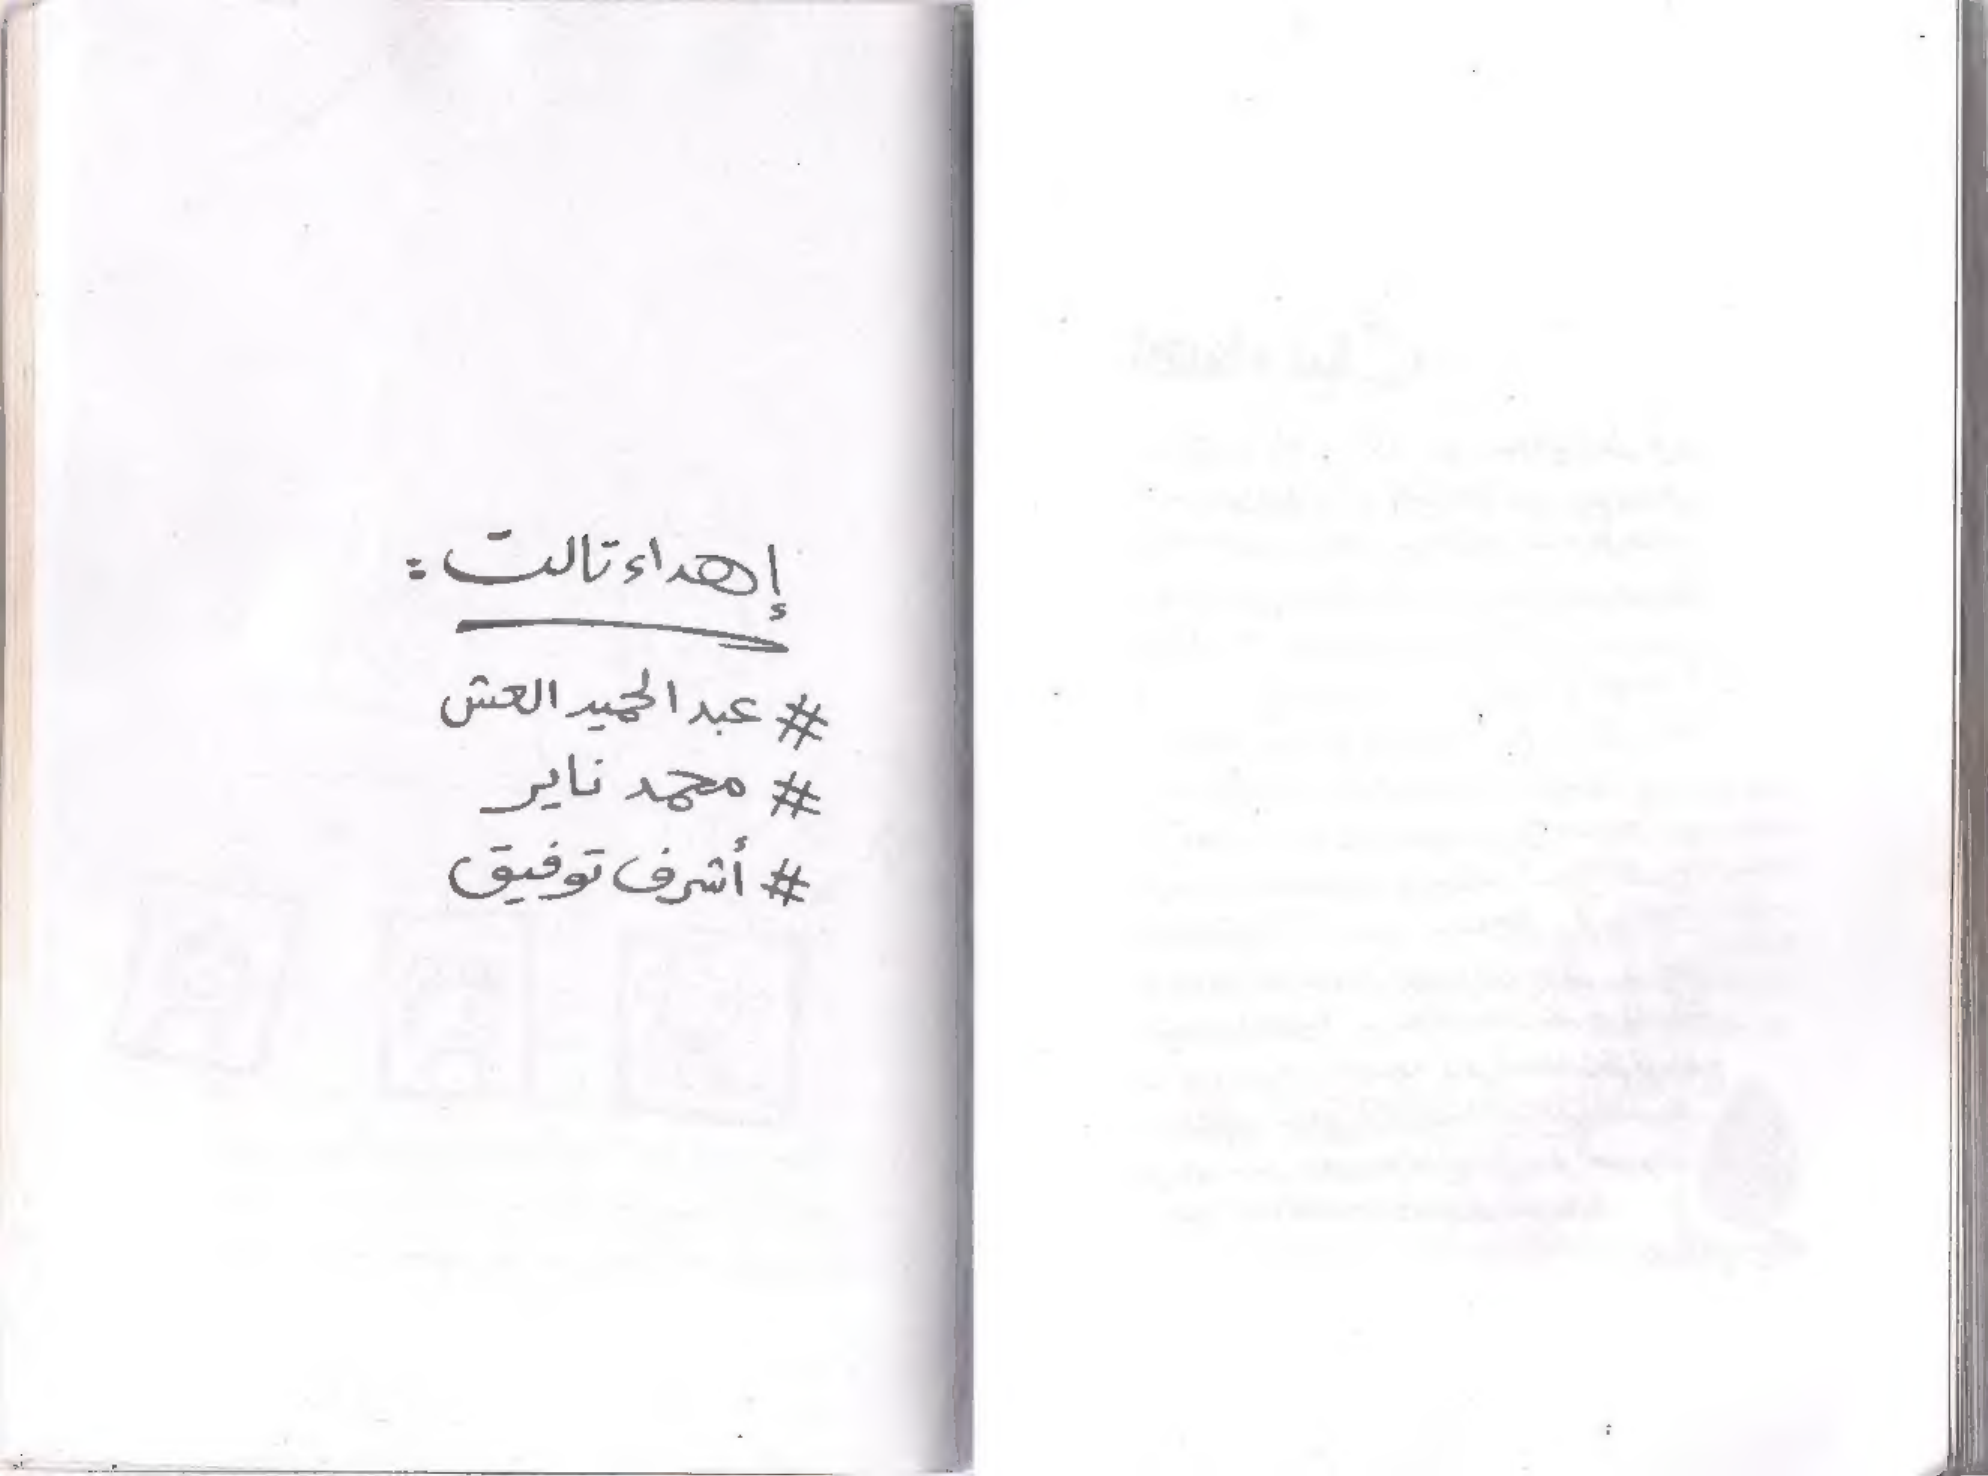 إهداء تالت :
# عبد الحميد العش
# محمد ناير
# أشرف توفيق